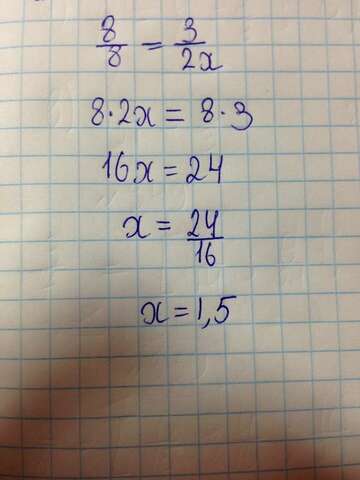 8/8 = 3/2x
8·2x = 8·3
16x = 24
x = 24/16
x = 1,5